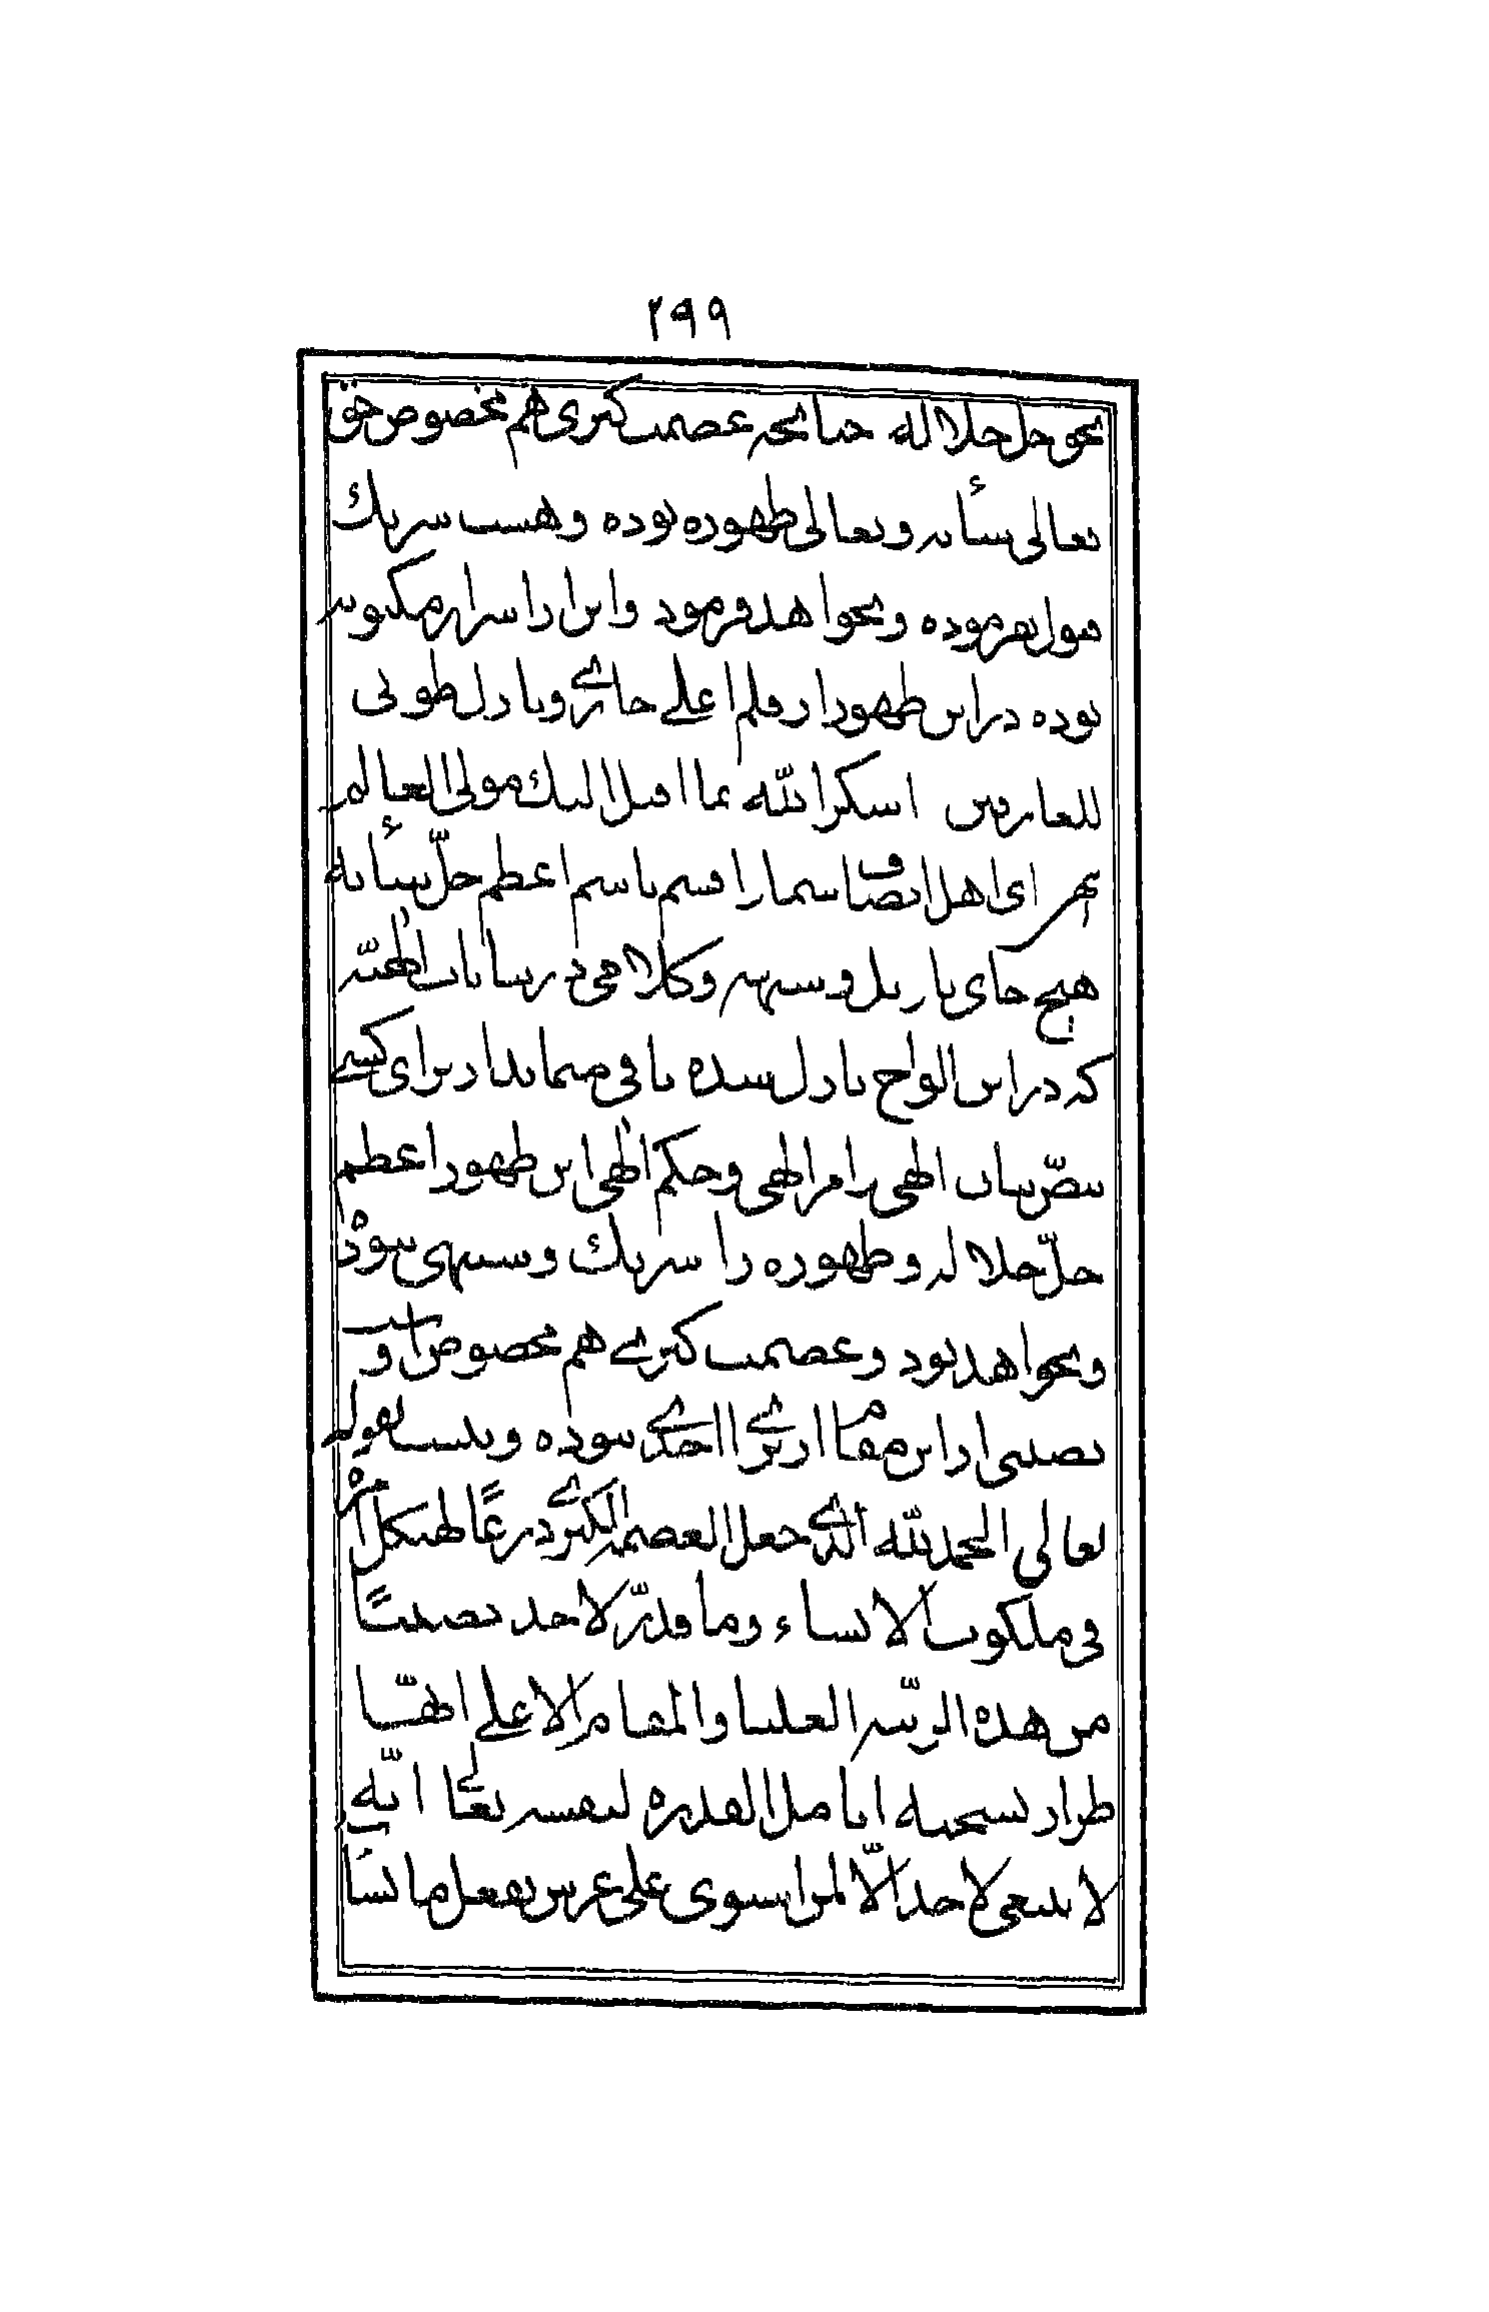 ۲۹۹
بحق جل جلاله چنانچه عصمت کبری هم مخصوص حق
تعالی شأنه و تعالی ظهوره بوده و هست شریک
قبول نفرموده و نخواهد فرمود و این از اسرار مکنونه
بوده در این ظهور از قلم اعلی جاری و نازل طوبی
للعارفین اشکر الله بما اقبل الیک مولی العالم
ای اهل انصاف شما را قسم باسم اعظم جلّ شأنه
هیچ جای تاویل و شبهه و کلامی در بیانات الهیّه
که در این الواح نازل شده باقی میماند از برای کسی
بنصّ بیان الهی بامر الهی و حکم الهی این ظهور اعظم
جلّ جلاله و ظهوره را شریک و شبهی نبوده
و نخواهد بود و عصمت کبری هم مخصوص اوست
نصیبی از این مقام از برای احدی نبوده و نیست بقوله
تعالی الحمد لله الذی جعل العصمة الکبری درعًا لهیکل امره
فی ملکوت الانشاء و ما قدّر لاحد نصیبًا
من هذه الرتبة العلیا و المقام الاعلی انّها
طراز نسجته انامل القدرة لنفسه تعالی انّه
لا ینبغی لاحد الّا لمن استوی علی عرش یفعل ما یشاء